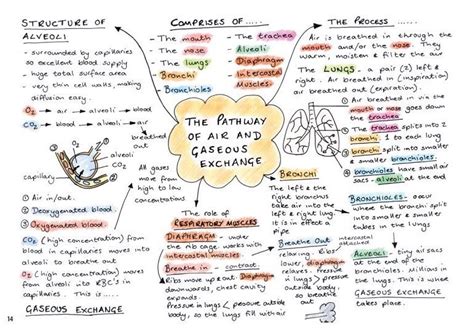 STRUCTURE OF
ALVEOLI
- surrounded by capillaries
so excellent blood supply
- huge total surface area
- very thin cell walls, making
diffusion easy.
O2 → air → alveoli → blood
CO2 → blood → alveoli → air
capillary
blood
alveoli
① Air in/out.
② Deoxygenated blood.
③ Oxygenated blood.
CO2 (high concentration) from
blood in capillaries moves into
alveoli to breathe out
O2 (high concentration) moves
from alveoli into RBC's in
capillaries. This is .....
GASEOUS EXCHANGE
14
All gases
move from
high to low
concentrations
COMPRISES OF .....
- The mouth
- The nose
- The lungs
- Bronchi
- Bronchioles
- The trachea
- Alveoli
- Diaphragm
- Intercostal
Muscles.
THE PATHWAY
OF AIR AND
GASEOUS
EXCHANGE
The role of
RESPIRATORY MUSCLES
DIAPHRAGM - under
the rib cage works with
intercostal muscles
Breathe in - contract.
Ribs move up & out. Diaphragm
downwards, chest cavity
expands.
Pressure in lungs < pressure outside
body, so the lungs fill with air
Breathe Out
relaxing. Ribs
lower, diaphragm
relaxes. Pressure
in lungs >
pressure outside
body, so
breathe out
BRONCHI
The left & the
right bronchus
take air into the
left & right lung.
It is in effect a
pipe
THE PROCESS .....
Air is breathed in through the
mouth and/or the nose. They
warm, moisten & filter the air
THE LUNGS - a pair (2) left &
right. Air breathed in (inspiration)
air breathed out (expiration)
① Air breathed in via the
mouth or nose goes
down the
trachea.
② The trachea splits into 2
bronchi. 1 to each lung
③ bronchi split into smaller
& smaller bronchioles.
④ bronchioles have air
sacs/alveoli at the end
BRONCHIOLES - occur
where the bronchi split
into smaller & smaller
tubes
ALVEOLI - tiny air sacs
at the end of the
bronchioles. Millions
in the lungs. This is
where GASEOUS EXCHANGE
takes place.